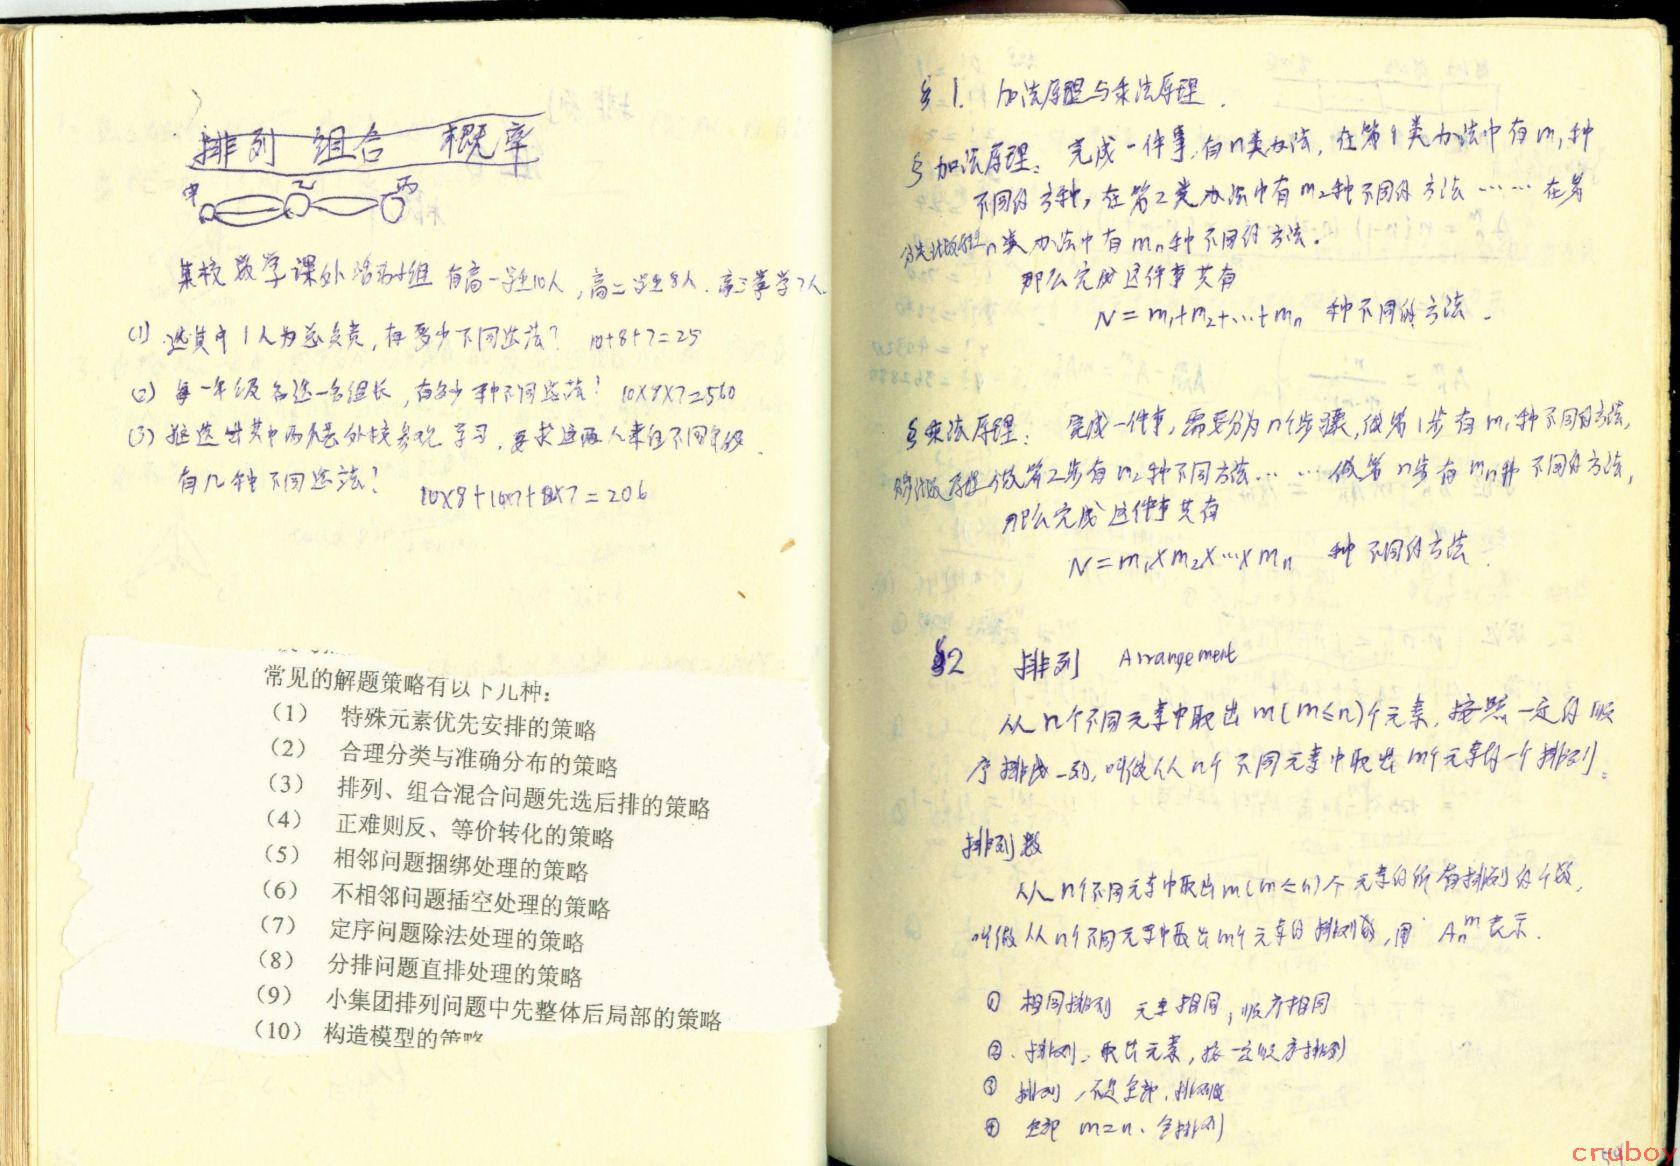 排列 组合 概率
甲 乙 丙
某校数学课外活动小组 有高一学生10人,高二学生8人,高三学生7人.
(1) 选其中1人为总负责,有多少不同选法? 10+8+7=25
(2) 每一年级各选一名组长,有多少种不同选法? 10×8×7=560
(3) 推选出其中两人去外校参观学习,要求这两人来自不同年级.
有几种不同选法? 10×8+10×7+8×7=206
常见的解题策略有以下几种:
(1) 特殊元素优先安排的策略
(2) 合理分类与准确分布的策略
(3) 排列、组合混合问题先选后排的策略
(4) 正难则反、等价转化的策略
(5) 相邻问题捆绑处理的策略
(6) 不相邻问题插空处理的策略
(7) 定序问题除法处理的策略
(8) 分排问题直排处理的策略
(9) 小集团排列问题中先整体后局部的策略
(10) 构造模型的策略
§1. 加法原理与乘法原理.
§加法原理: 完成一件事,有n类办法,在第1类办法中有m₁种
不同的方种,在第2类办法中有m₂种不同的方法……在第
分类计数原理 n类办法中有mₙ种不同的方法.
那么完成这件事共有
N=m₁+m₂+…+mₙ 种不同的方法.
§乘法原理: 完成一件事,需要分为n个步骤,做第1步有m₁种不同的方法,
分步计数原理 做第2步有m₂种不同方法……做第n步有mₙ种不同的方法,
那么完成这件事共有
N=m₁×m₂×…×mₙ 种不同的方法.
§2 排列 Arrangement
从n个不同元素中取出m(m≤n)个元素,按照一定的顺
序排成一列,叫做从n个不同元素中取出m个元素的一个排列。
排列数
从n个不同元素中取出m(m≤n)个元素的所有排列的个数,
叫做从n个不同元素中取出m个元素的排列数,用 Aₙᵐ表示.
① 相同排列 元素相同,顺序相同
②. 排列:取出元素,按一定顺序排列
③ 排列,不是全部,排列数
④ 全部 m=n. 全排列
cruboy